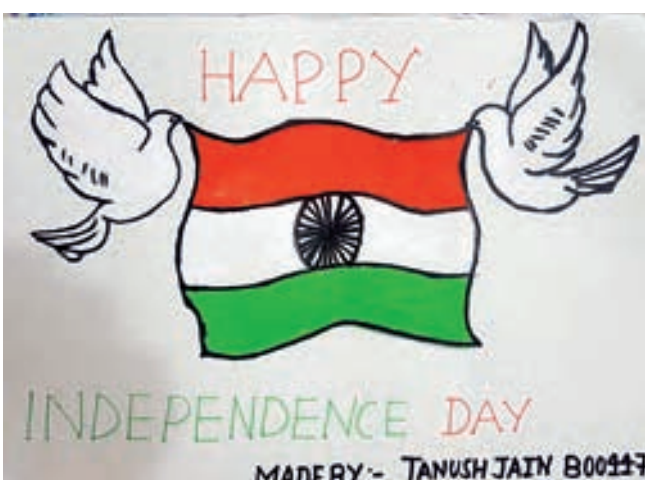 HAPPY
INDEPENDENCE DAY
MADE BY:- TANUSH JAIN B00117